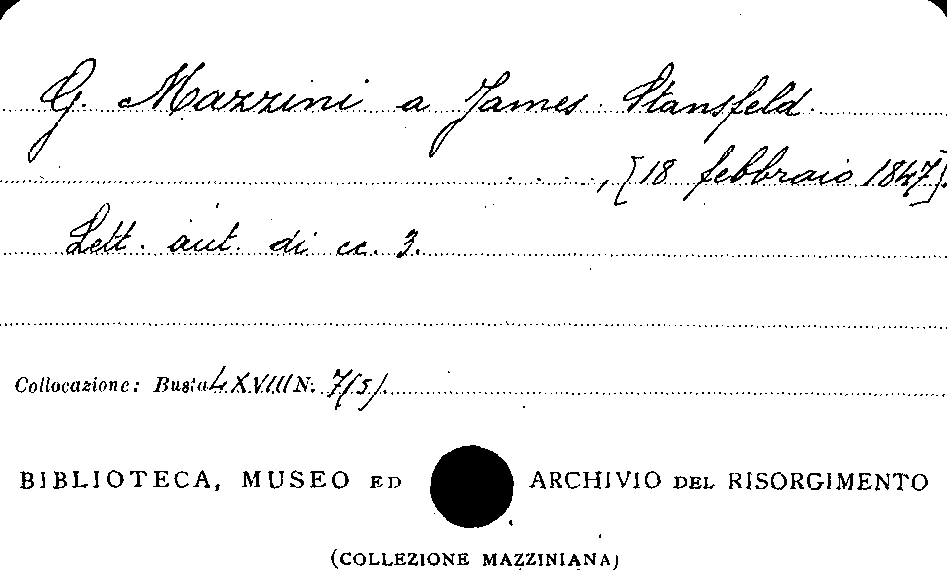 G. Mazzini a James Stansfeld
......, [18 febbraio 1847].
Lett. aut. di cc. 3.
Collocazione: Busta LXVIII N. 7(5).
BIBLIOTECA, MUSEO ED ARCHIVIO DEL RISORGIMENTO
(COLLEZIONE MAZZINIANA)